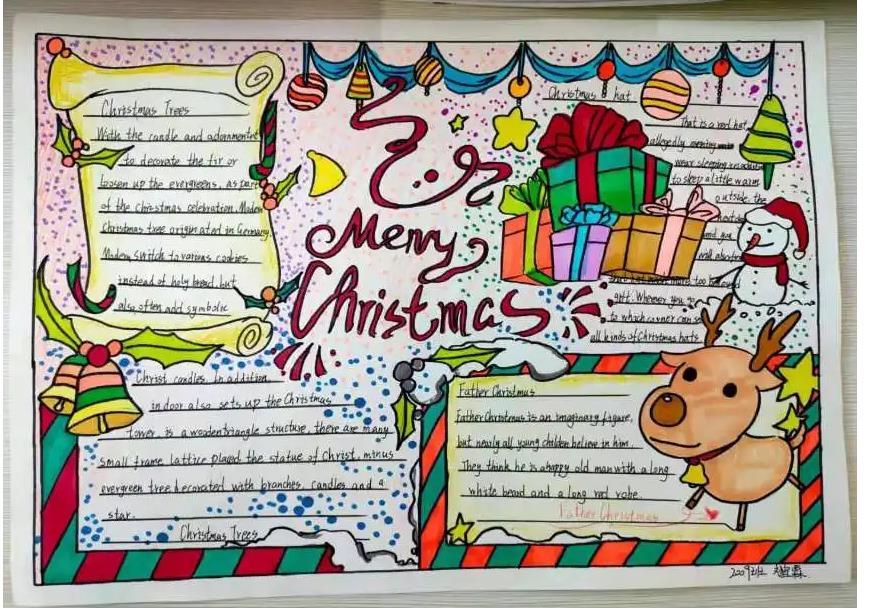 Christmas Trees
With the candle and adornmentet
to decorate the fir or
loosen up the evergreens, as part
of the christmas celebration. Modern
Christmas tree originated in Germany.
Modern switch to various cookies
instead of holy bread, but
also often add symbolic
Merry
Christmas
Christmas hat
That is a red hat,
allegedly
wear sleeping
to sleep a little warm
outside, the
next day
you
will also
more too beloved
gift. Wherever you go
to which corner can see
all kinds of Christmas hats
Christ candles. In addition,
indoor also sets up the Christmas
tower, is a woodentriangle structure, there are many
small frame lattice played the statue of Christ, minus
evergreen tree decorated with branches, candles and a
star.
Christmas Trees
Father Christmas
Father Christmas is an imaginary figure,
but nearly all young children believe in him.
They think he is ahappy old man with a long
white beard and a long red robe.
Father Christmas